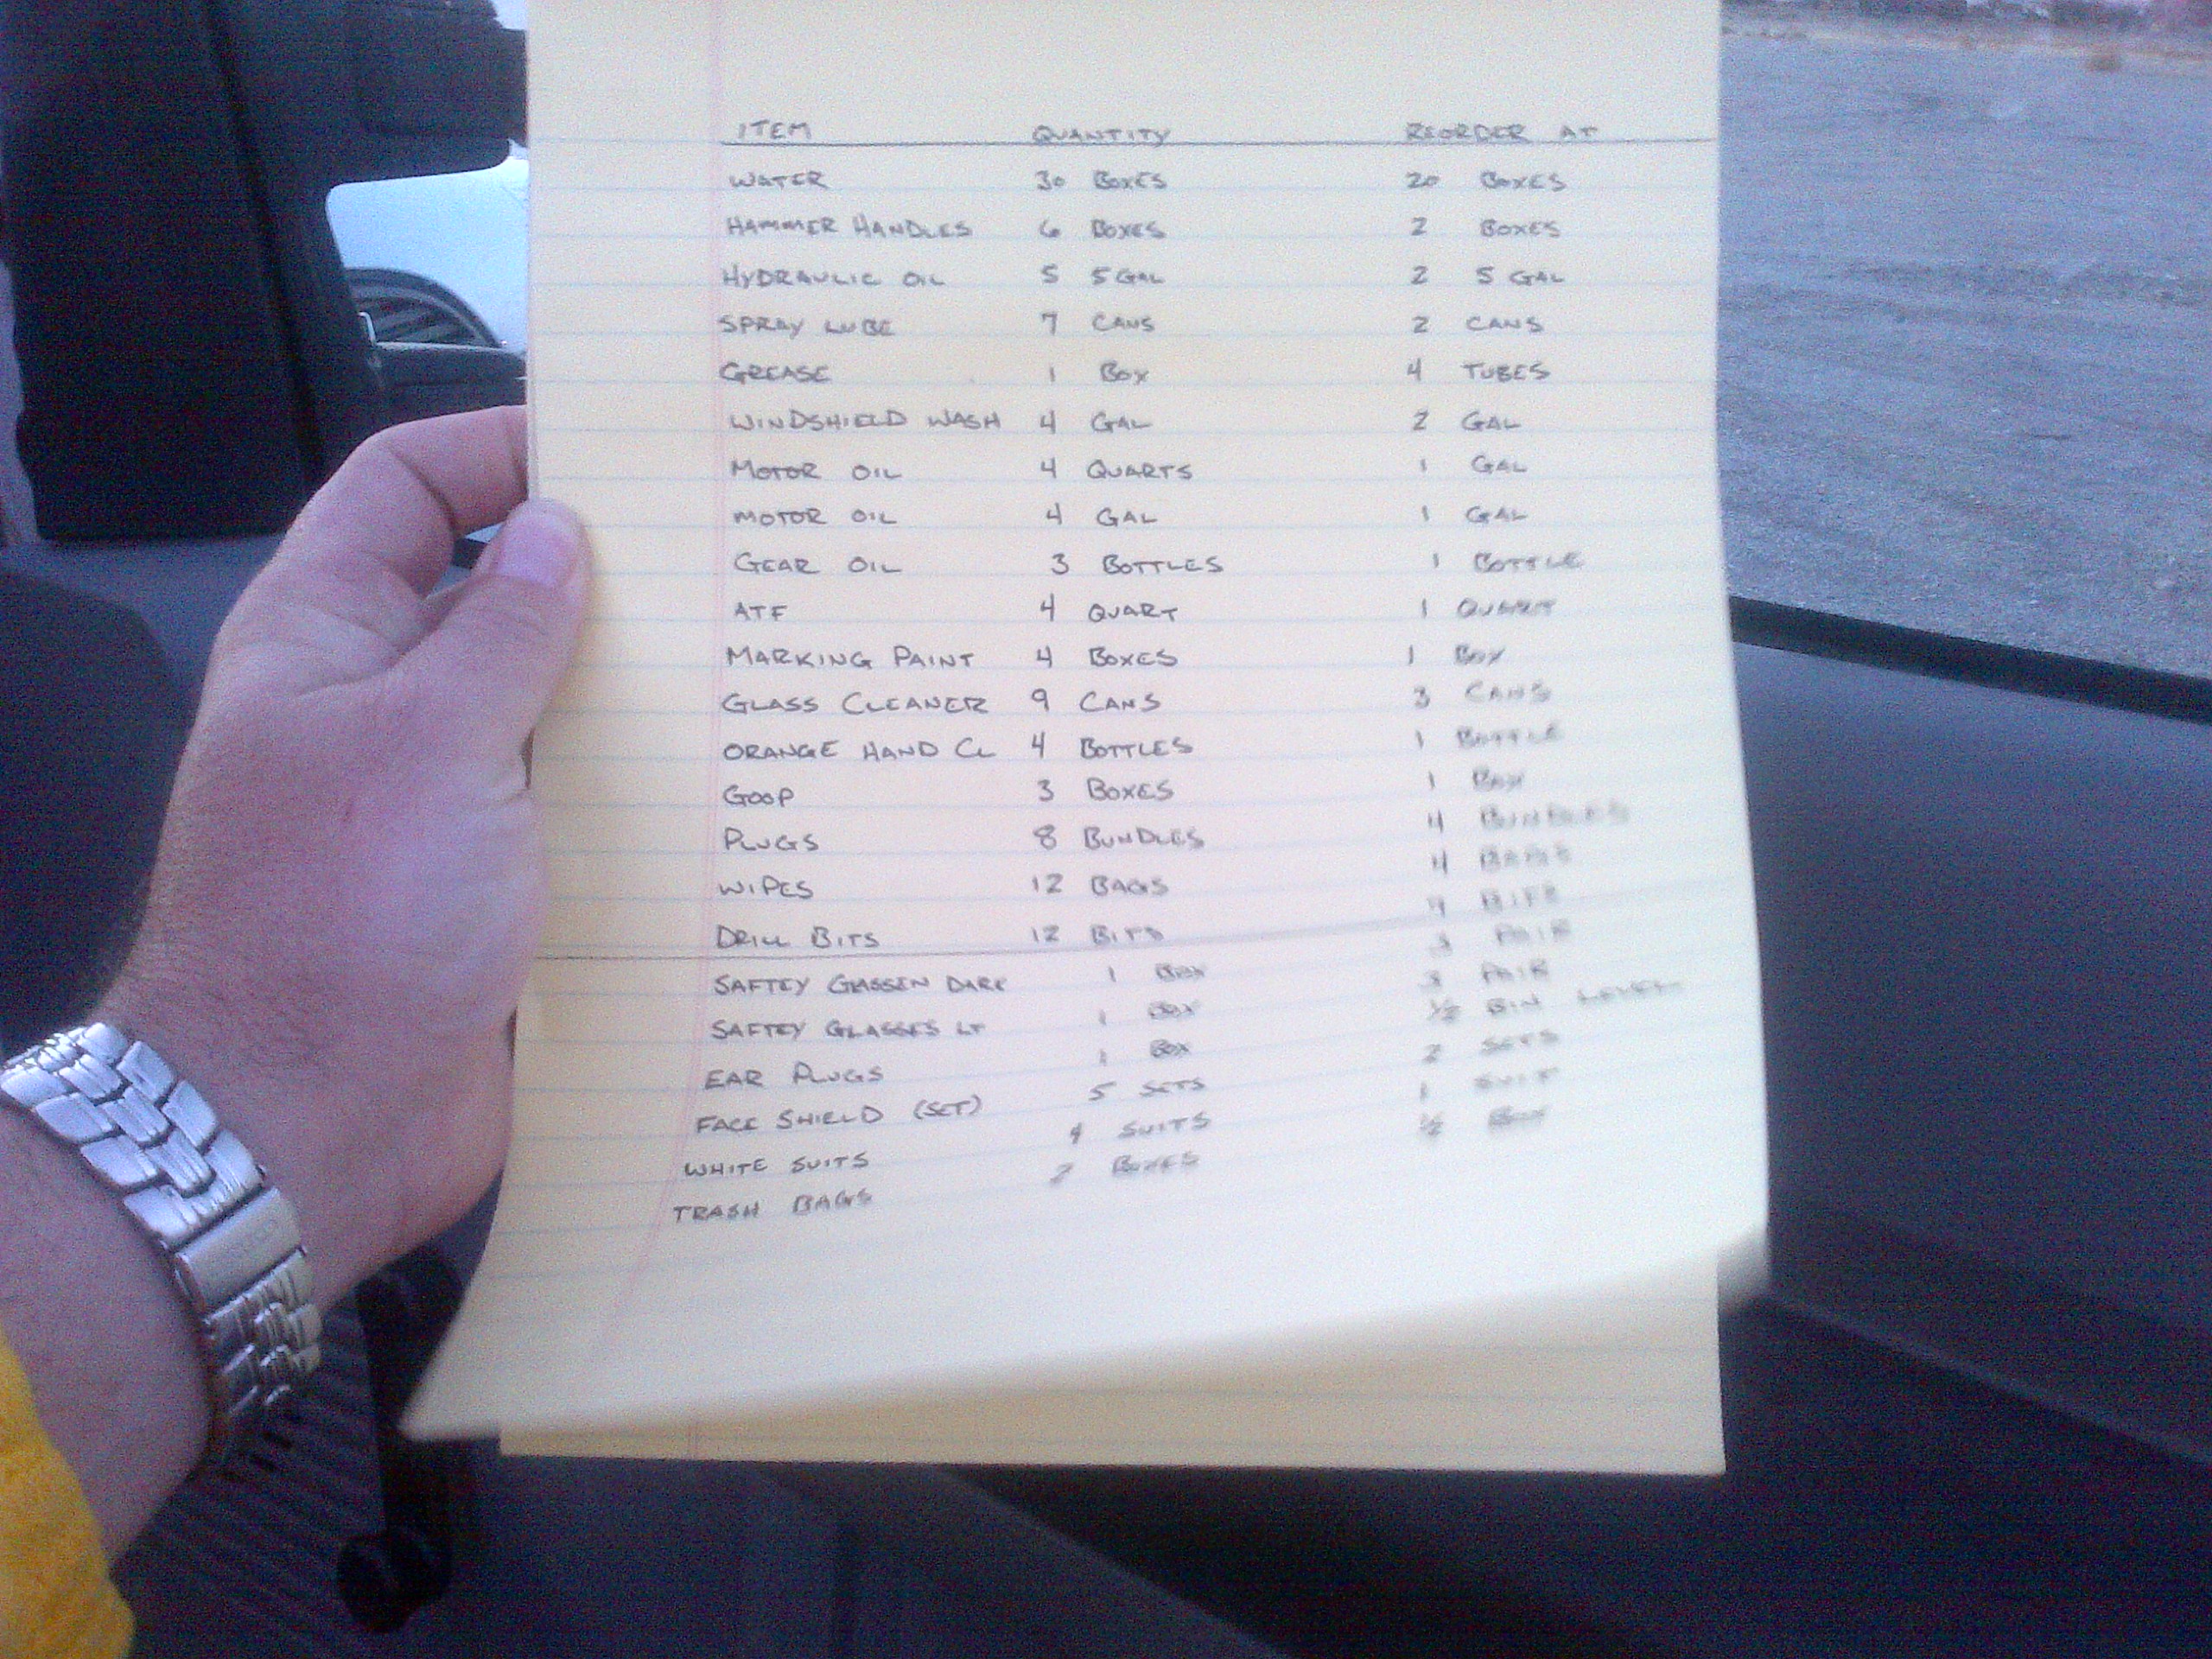 ITEM QUANTITY REORDER AT
WATER 30 BOXES 20 BOXES
HAMMER HANDLES 6 BOXES 2 BOXES
HYDRAULIC OIL 5 5 GAL 2 5 GAL
SPRAY LUBE 7 CANS 2 CANS
GREASE 1 BOX 4 TUBES
WINDSHIELD WASH 4 GAL 2 GAL
MOTOR OIL 4 QUARTS 1 GAL
MOTOR OIL 4 GAL 1 GAL
GEAR OIL 3 BOTTLES 1 BOTTLE
ATF 4 QUART 1 QUART
MARKING PAINT 4 BOXES 1 BOX
GLASS CLEANER 9 CANS 3 CANS
ORANGE HAND CL 4 BOTTLES 1 BOTTLE
GOOP 3 BOXES 1 BOX
PLUGS 8 BUNDLES 4 BUNDLES
WIPES 12 BAGS 4 BAGS
DRILL BITS 12 BITS 4 BITS
SAFTEY GLASSEN DARK 1 BOX 3 PAIR
SAFTEY GLASSES LT 1 BOX 3 PAIR
EAR PLUGS 1 BOX 1/2 BIN LEVEL
FACE SHIELD (SET) 5 SETS 2 SETS
WHITE SUITS 4 SUITS 1 SUIT
TRASH BAGS 2 BOXES 1/2 BOX